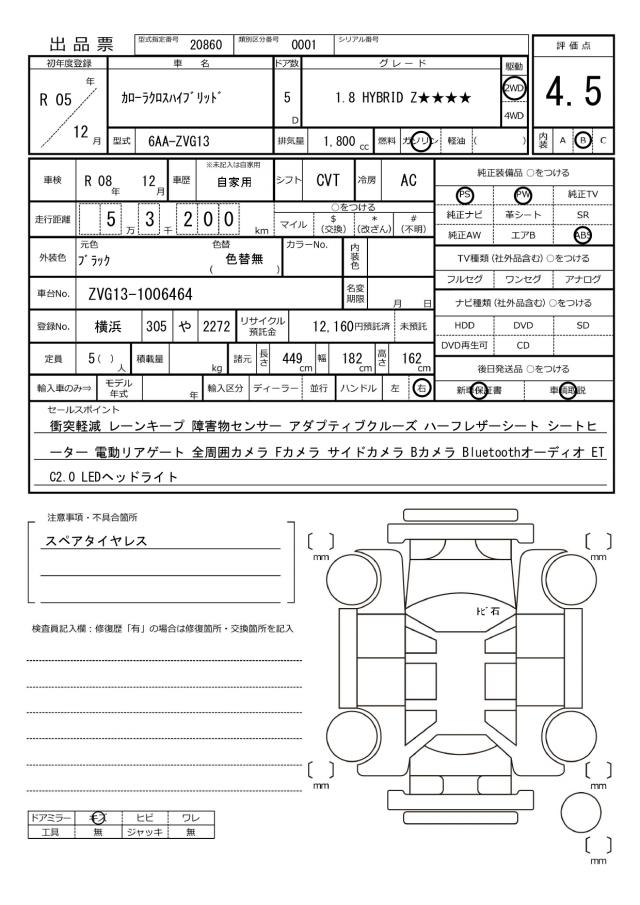 出品票 型式指定番号 20860 類別区分番号 0001 シリアル番号
評価点
4.5
内装 A B C
初年度登録 車名 ドア数 グレード 駆動
R 05 年 12 月
カローラクロスハイブリッド
5 D
1.8 HYBRID Z★★★★
2WD
4WD
型式 6AA-ZVG13 排気量 1,800 cc 燃料 ガソリン 軽油 ( )
車検 R 08 年 12 月 車歴 ※未記入は自家用 自家用 シフト CVT 冷房 AC
走行距離 5 万 3 千 2 0 0 km
○をつける
マイル $ (交換) * (改ざん) # (不明)
外装色 元色 ブラック 色替 ( 色替無 ) カラーNo. 内装色
車台No. ZVG13-1006464 名変期限 月 日
登録No. 横浜 305 や 2272 リサイクル預託金 12,160円預託済 未預託
定員 5 ( ) 人 積載量 kg 諸元 長さ 449 cm 幅 182 cm 高さ 162 cm
輸入車のみ⇒ モデル年式 年 輸入区分 ディーラー 並行 ハンドル 左 右
純正装備品 ○をつける
PS PW 純正TV
純正ナビ 革シート SR
純正AW エアB ABS
TV種類 (社外品含む) ○をつける
フルセグ ワンセグ アナログ
ナビ種類 (社外品含む) ○をつける
HDD DVD SD
DVD再生可 CD
後日発送品 ○をつける
新車保証書 車輌取説
セールスポイント
衝突軽減 レーンキープ 障害物センサー アダプティブクルーズ ハーフレザーシート シートヒ
ーター 電動リアゲート 全周囲カメラ Fカメラ サイドカメラ Bカメラ Bluetoothオーディオ ET
C2.0 LEDヘッドライト
注意事項・不具合箇所
スペアタイヤレス
検査員記入欄:修復歴「有」の場合は修復箇所・交換箇所を記入
〔 〕 mm
〔 〕 mm
トビ石
〔 〕 mm
〔 〕 mm
〔 〕 mm
ドアミラー キズ ヒビ ワレ
工具 無 ジャッキ 無